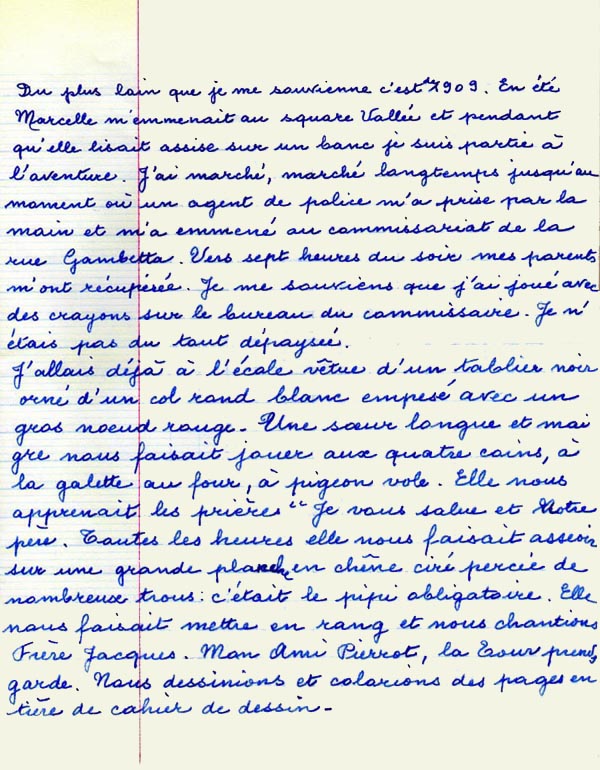 Du plus loin que je me souvienne c'est de 1909. En été
Marcelle m'emmenait au square Vallée et pendant
qu'elle lisait assise sur un banc je suis partie à
l'aventure. J'ai marché, marché longtemps jusqu'au
moment où un agent de police m'a prise par la
main et m'a emmené au commissariat de la
rue Gambetta. Vers sept heures du soir mes parents
m'ont récupérée. Je me souviens que j'ai joué avec
des crayons sur le bureau du commissaire. Je n'
étais pas du tout dépaysée.
J'allais déjà à l'école vêtue d'un tablier noir
orné d'un col rond blanc empesé avec un
gros noeud rouge. Une sœur longue et mai
gre nous faisait jouer aux quatre coins, à
la galette au four, à pigeon vole. Elle nous
apprenait les prières " Je vous salue et Notre
père. Toutes les heures elle nous faisait asseoir
sur une grande planche en chêne ciré percée de
nombreux trous : c'était le pipi obligatoire. Elle
nous faisait mettre en rang et nous chantions
Frère Jacques. Mon Ami Pierrot, la Tour prends
garde. Nous dessinions et colorions des pages en
tière de cahier de dessin -